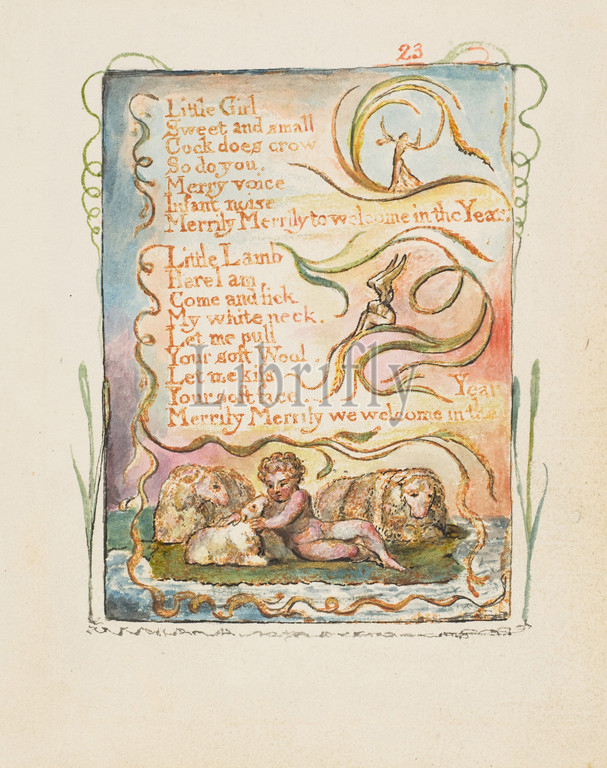 23
Little Girl
Sweet and small
Cock does crow
So do you.
Merry voice
Infant noise
Merrily Merrily to welcome in the Year
Little Lamb
Here I am,
Come and lick
My white neck.
Let me pull
Your soft Wool.
Let me kiss
Your soft face.
Merrily Merrily we welcome in the
Year
Librifly